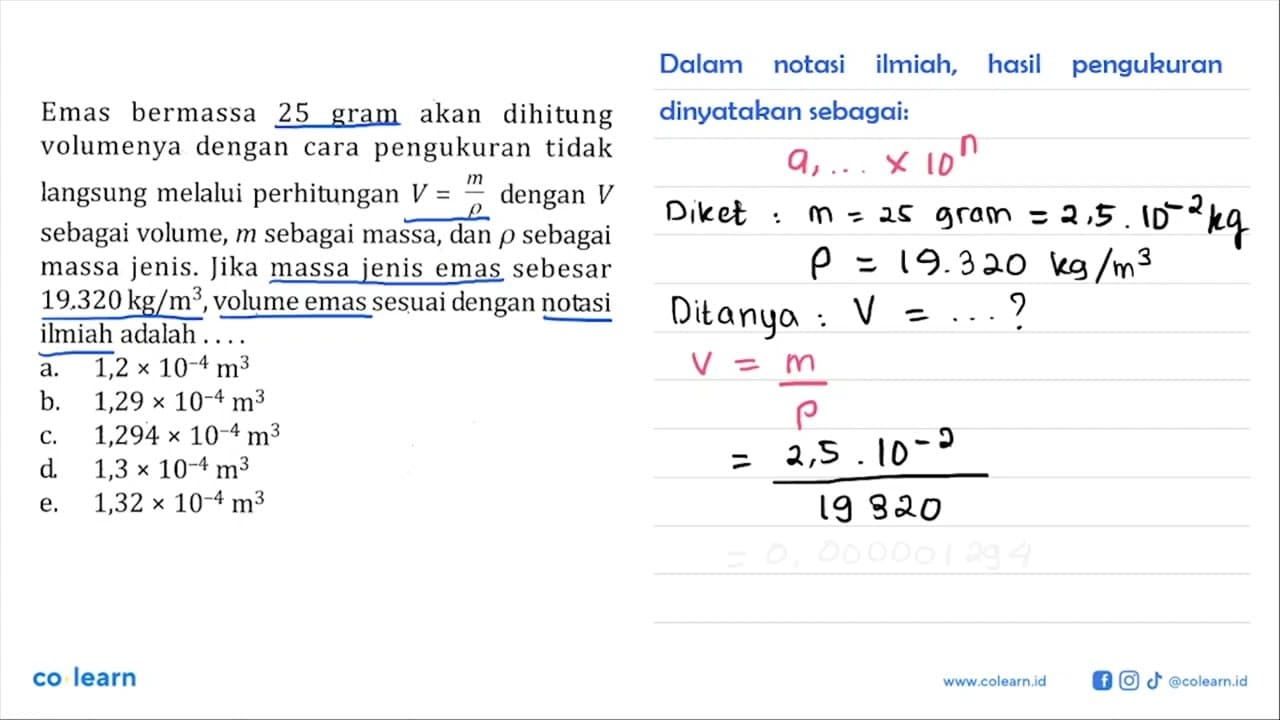 Emas bermassa 25 gram akan dihitung
volumenya dengan cara pengukuran tidak
langsung melalui perhitungan V = m/ρ dengan V
sebagai volume, m sebagai massa, dan ρ sebagai
massa jenis. Jika massa jenis emas sebesar
19.320 kg/m³, volume emas sesuai dengan notasi
ilmiah adalah . . . .
a. 1,2 × 10⁻⁴ m³
b. 1,29 × 10⁻⁴ m³
c. 1,294 × 10⁻⁴ m³
d. 1,3 × 10⁻⁴ m³
e. 1,32 × 10⁻⁴ m³
Dalam notasi ilmiah, hasil pengukuran
dinyatakan sebagai:
a, ... × 10ⁿ
Diket : m = 25 gram = 2,5 . 10⁻² kg
ρ = 19.320 kg/m³
Ditanya : V = ... ?
V = m/ρ
= 2,5 . 10⁻² / 19320
= 0,000001294
co learn
www.colearn.id
@colearn.id